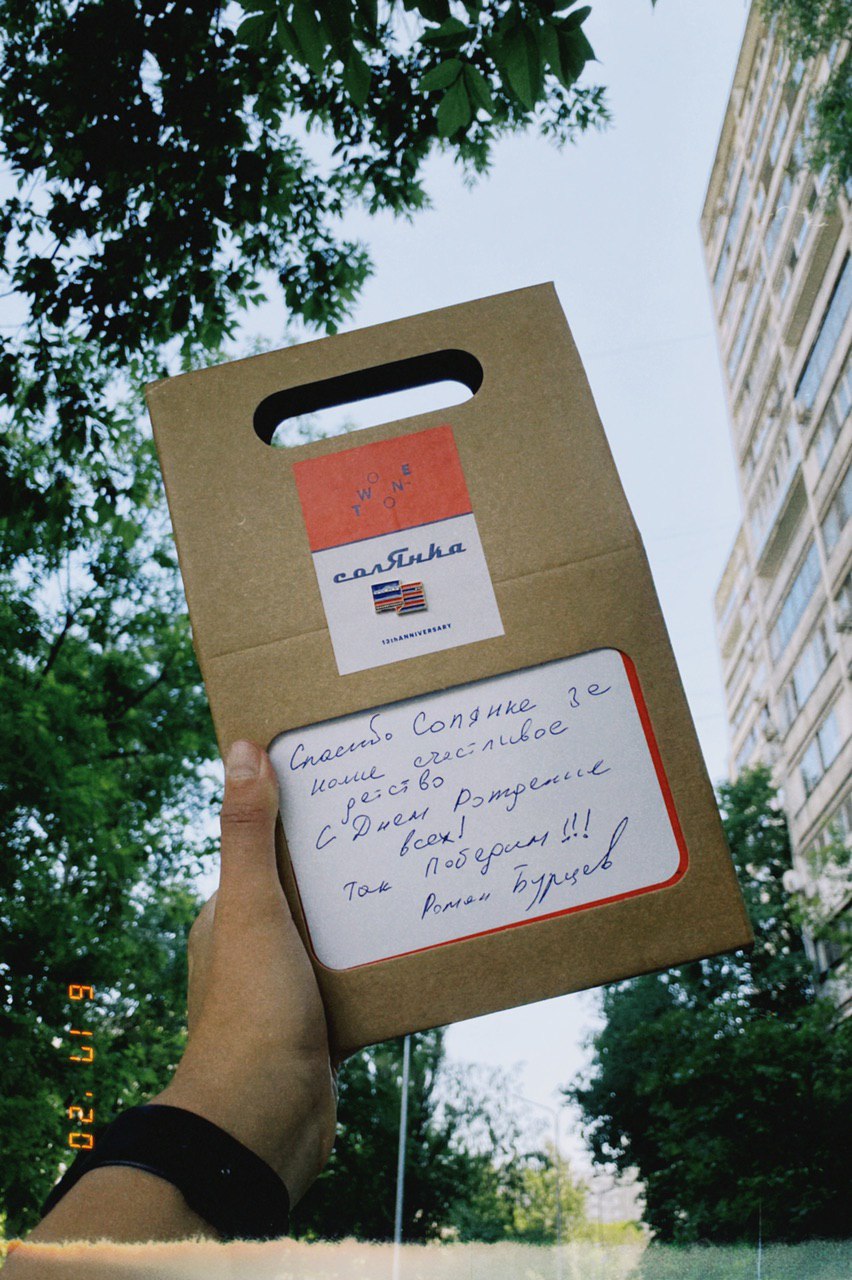 TWO
ONE
солЯнка
13thANNIVERSARY
Спасибо Солянке за
наше счастливое
детство
С Днем Рождения
всех!
Так Победим!!!
Роман Бурцев
6 17 '20